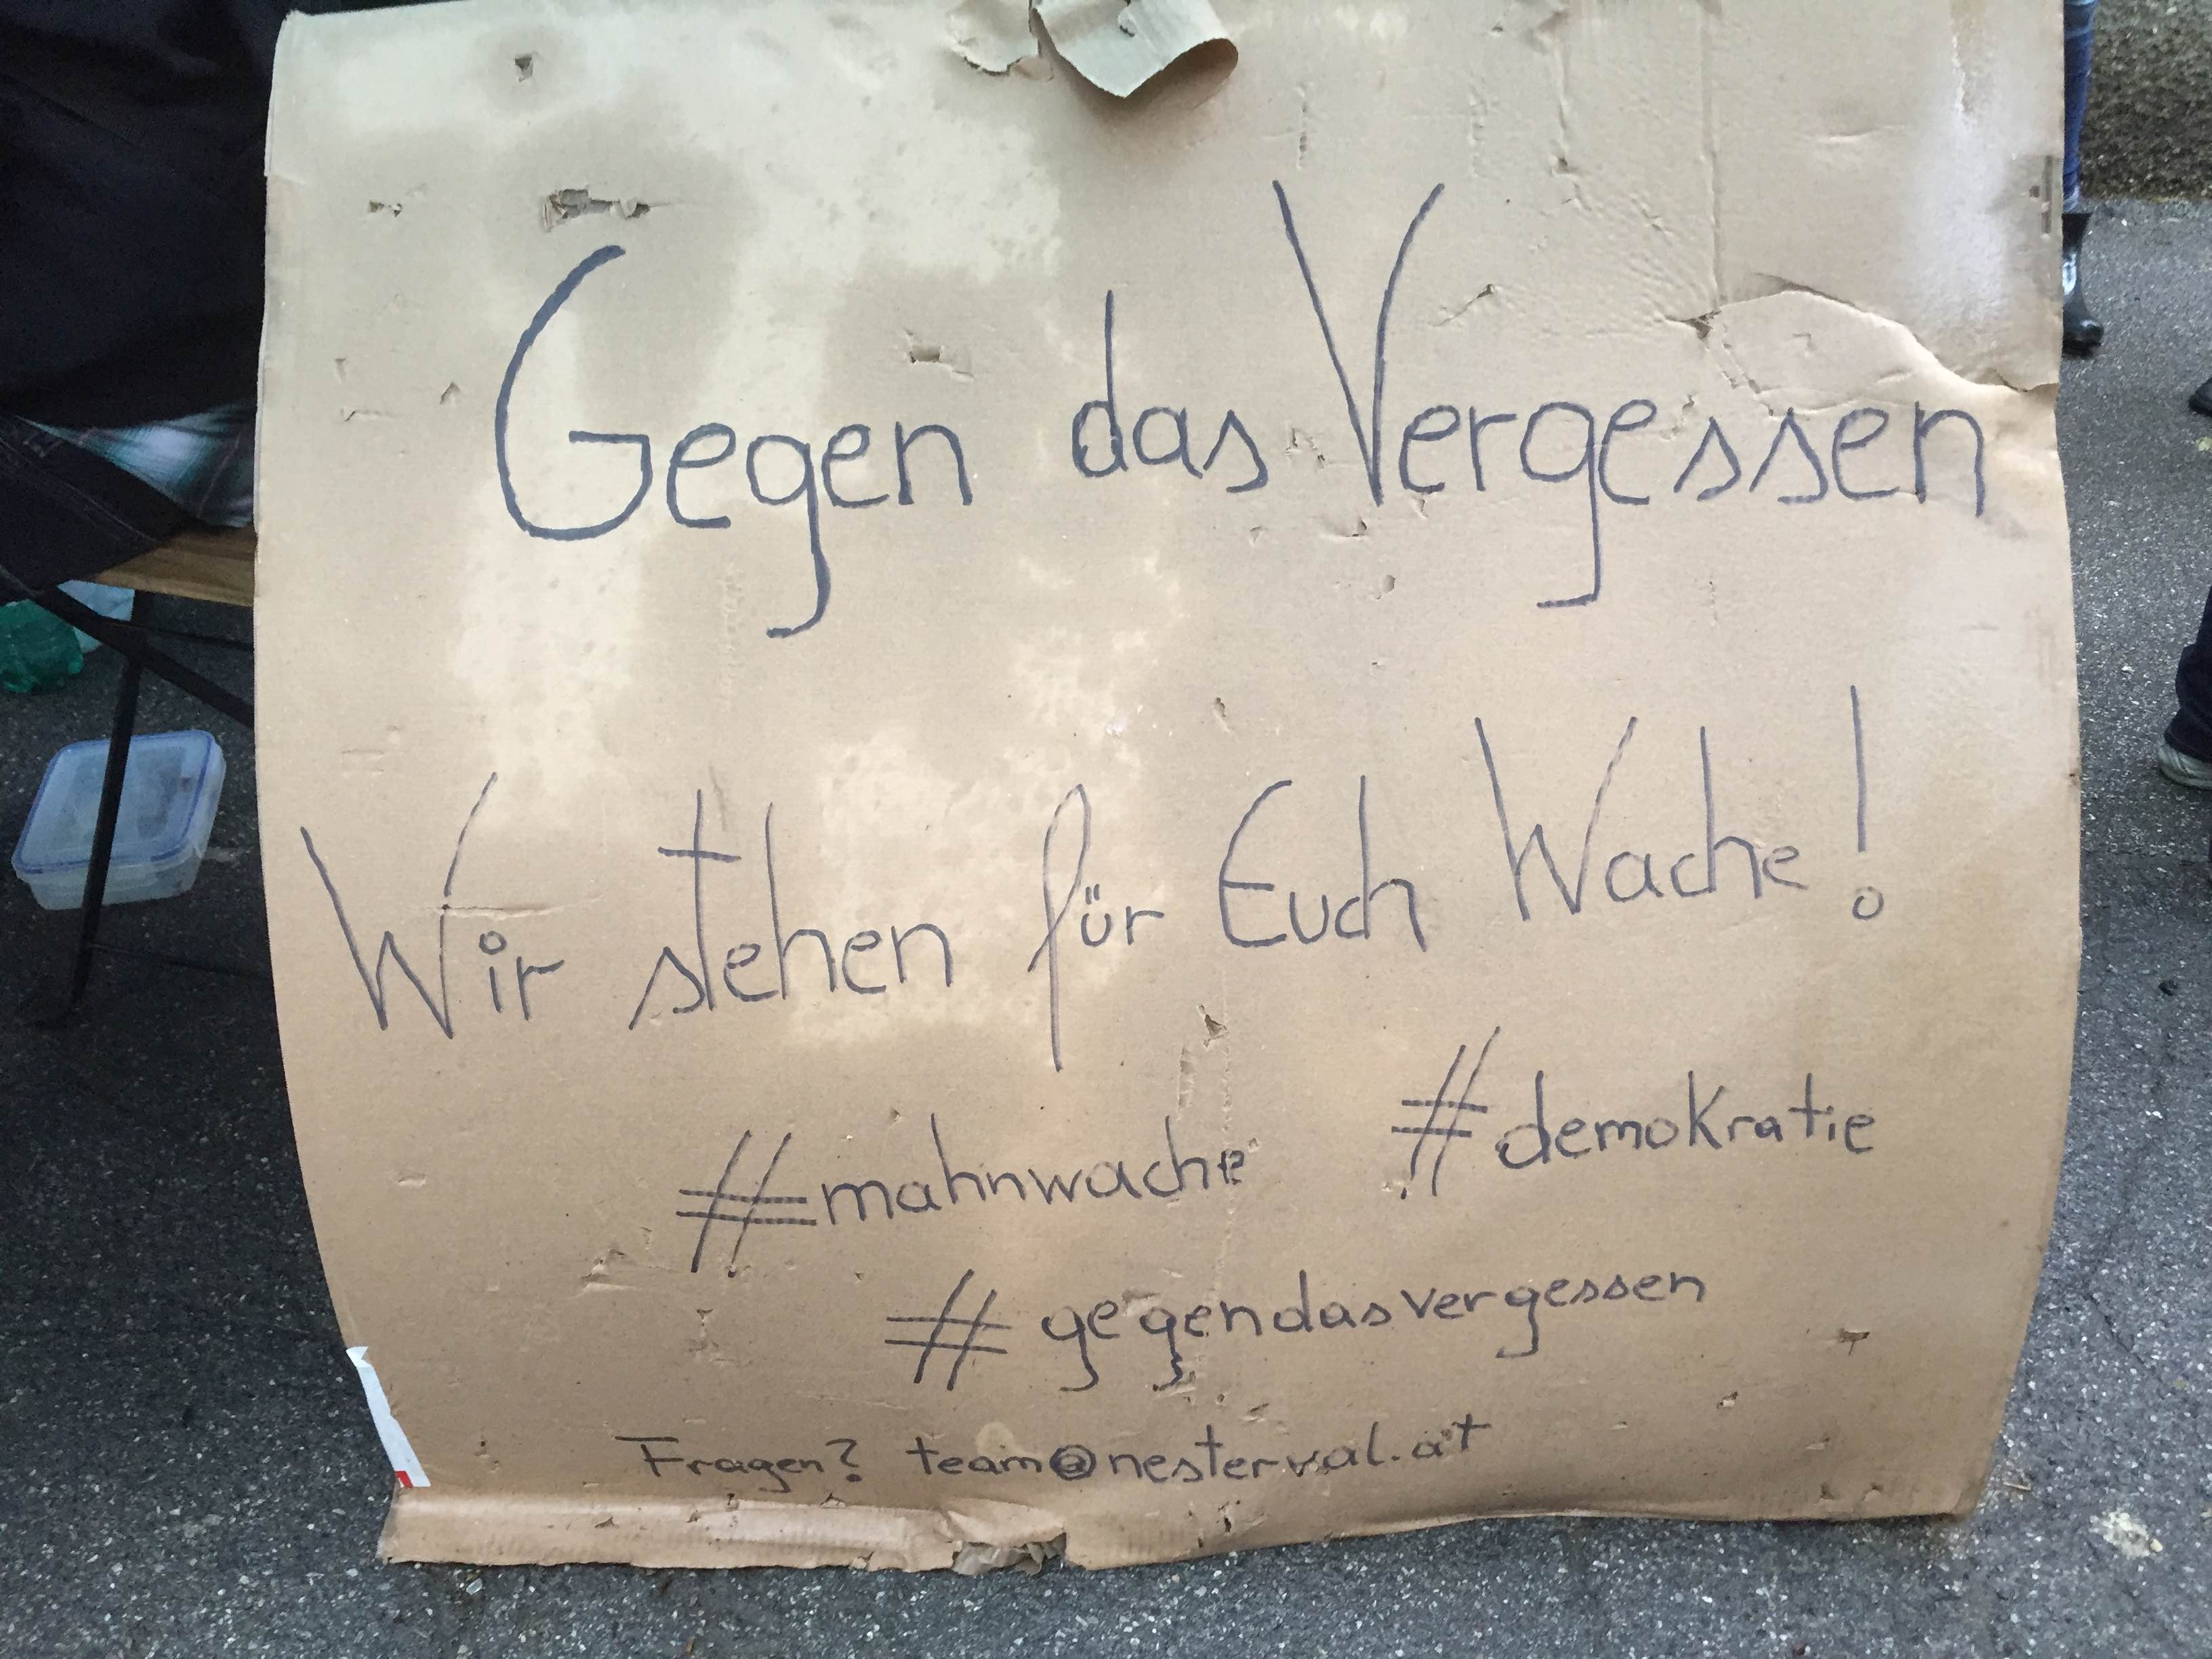 Gegen das Vergessen
Wir stehen für Euch Wache!
#mahnwache #demokratie
#gegendasvergessen
Fragen? team@nesterval.at